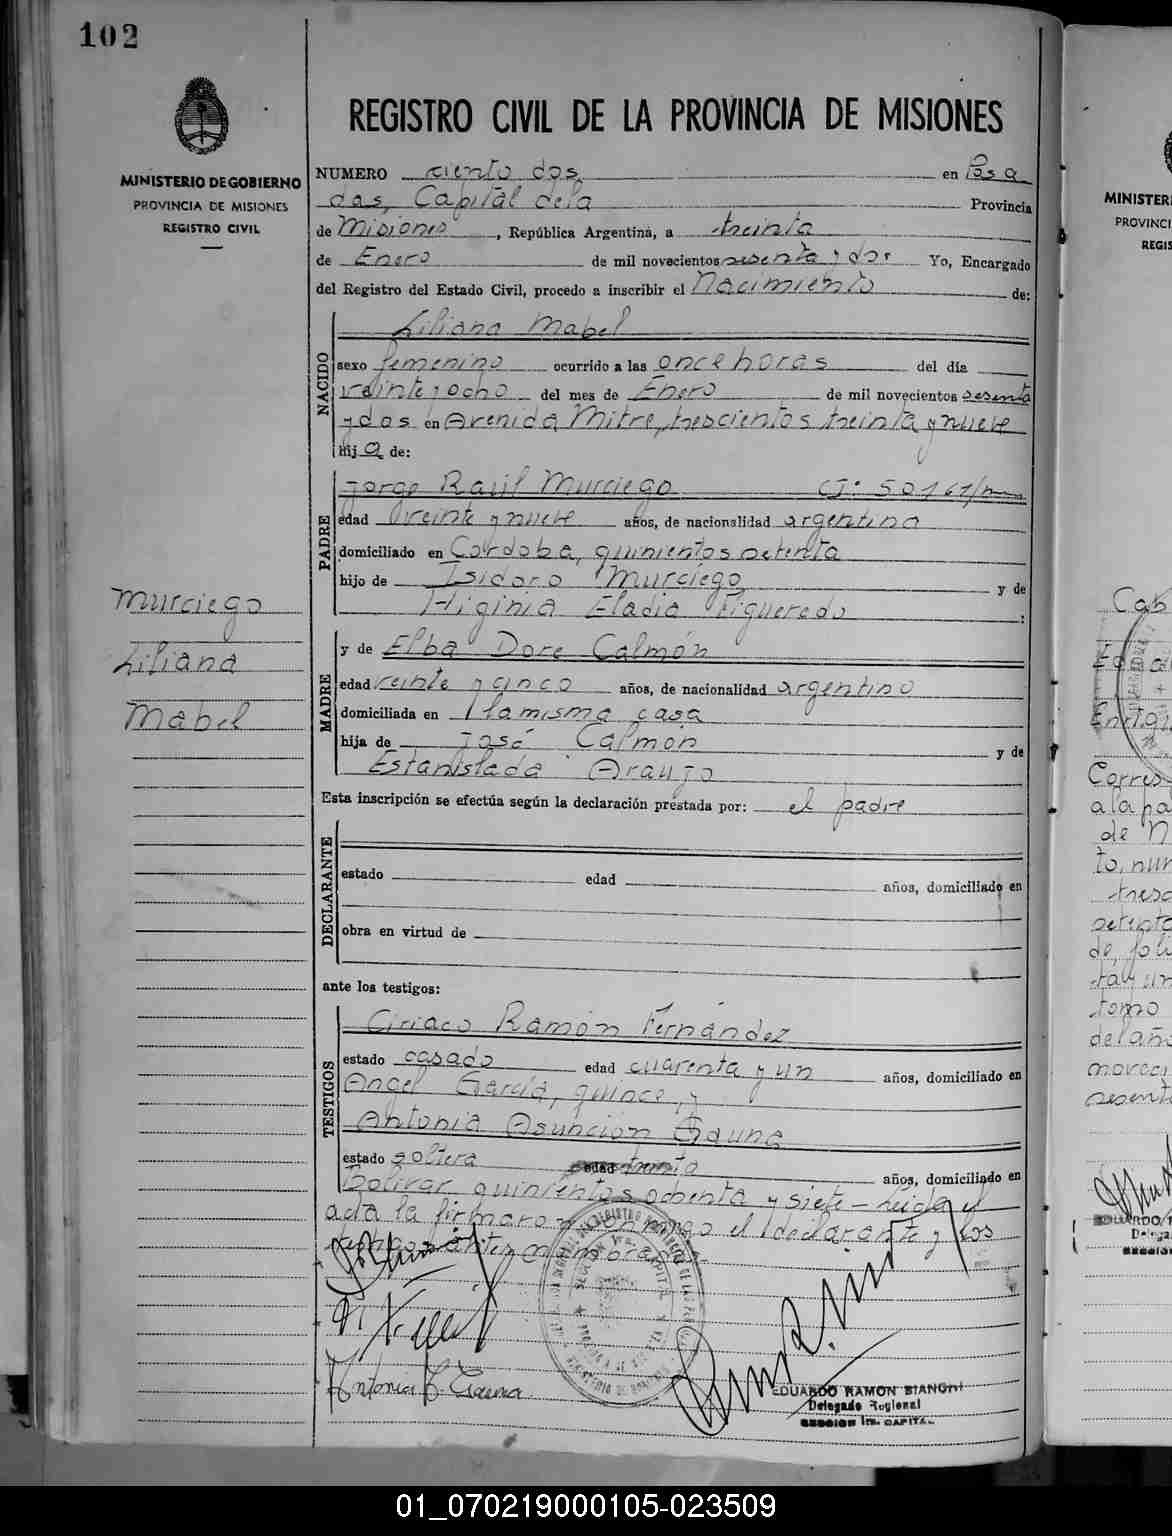 102
MINISTERIO DE GOBIERNO
PROVINCIA DE MISIONES
REGISTRO CIVIL
REGISTRO CIVIL DE LA PROVINCIA DE MISIONES
NUMERO ciento dos en Posa
das, Capital de la Provincia
de Misiones, República Argentina, a treinta
de Enero de mil novecientos sesenta y dos Yo, Encargado
del Registro del Estado Civil, procedo a inscribir el Nacimiento de:
NACIDO
Liliana Mabel
sexo femenino ocurrido a las once horas del día
veinte y ocho del mes de Enero de mil novecientos sesenta
y dos en Avenida Mitre, trescientos treinta y nueve
hija de:
PADRE
Jorge Raúl Murciego
edad veinte y nueve años, de nacionalidad argentina
domiciliado en Cordoba, quinientos setenta
hijo de Isidoro Murciego y de
Higinia Eladia Figueredo :
Murciego
Liliana
Mabel
MADRE
y de Elba Dore Calmón
edad veinte y cinco años, de nacionalidad argentino
domiciliada en la misma casa
hija de José Calmón y de
Estanislada Araujo
Esta inscripción se efectúa según la declaración prestada por: el padre
DECLARANTE
estado edad años, domiciliado en
obra en virtud de
ante los testigos:
TESTIGOS
Ciriaco Ramón Fernández
estado casado edad cuarenta y un años, domiciliado en
Angel García, quince, y
Antonia Asunción Gauna
estado soltera edad treinta años, domiciliado en
Bolívar, quinientos ochenta y siete - Leída el
acta la firmaron conmigo el declarante y los
testigos antes nombrados
Antonia A. Gauna
EDUARDO RAMON BIANCHI
Delegado Regional
SECCION 1ra. CAPITAL
MINISTER
PROVINCI
REGIS
Corres
a la pa
de N
to, nun
tresc
setenta
de, foli
ta y un
tomo
del año
noveci
sesenta
EDUARDO
Delega
SECCION
01_070219000105-023509